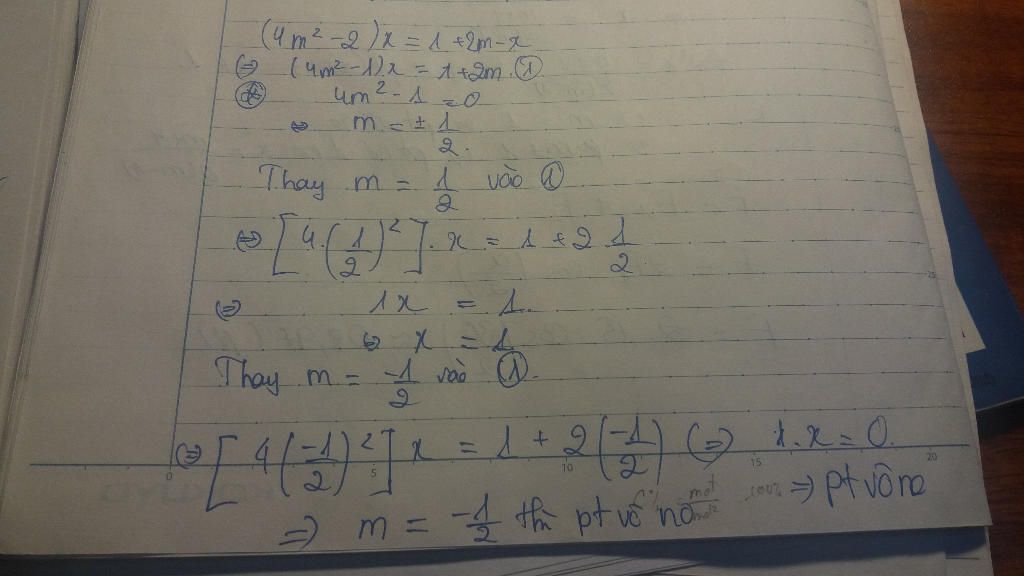 (4m² - 2)x = 1 + 2m - x
⇔ (4m² - 1)x = 1 + 2m. ①
⊛ 4m² - 1 = 0
⇔ m = ± 1/2.
Thay m = 1/2 vào ①
⇔ [4.(1/2)²].x = 1 + 2.1/2.
⇔ 1x = 1.
⇔ x = 1
Thay m = -1/2 vào ①.
⇔ [4(-1/2)²]x = 1 + 2(-1/2) ⇔ 1.x = 0.
⇒ pt vô no
⇒ m = -1/2 thì pt vô no
0 5 10 15 20
25